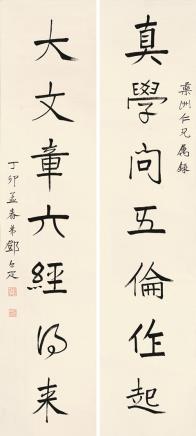 洲仁兄属
真學問五倫作起
大文章六經得来
丁卯孟春弟鄧